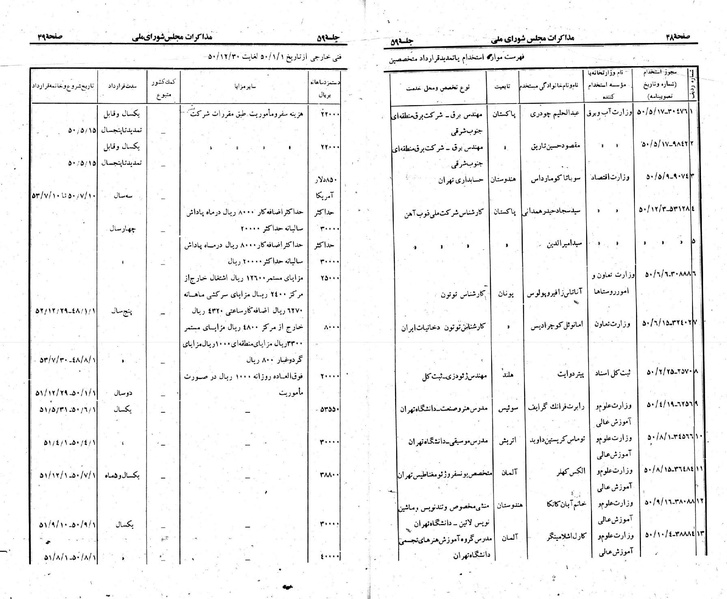 صفحه ۳۸ مذاکرات مجلس شورای ملی جلسه ۵۹
فهرست موارد استخدام یا تمدید قرارداد متخصصین
شماره ردیف
مجوز استخدام (شماره و تاریخ تصویبنامه)
نام وزارتخانه یا مؤسسه استخدام کننده
نام و نام خانوادگی مستخدم
تابعیت
نوع تخصص و محل خدمت
۱ ۳۰۴۷۶–۵۰/۵/۱۷ وزارت آب و برق عبدالحلیم چودری پاکستان مهندس برق – شرکت برق منطقه‌ای
جنوب شرقی
۲ ۹۸۴۲–۵۰/۵/۱۷ » » » مقصود حسین تاریق » مهندس برق – شرکت برق منطقه‌ای
جنوب شرقی
۳ ۹۰۷۴–۵۰/۵/۹ وزارت اقتصاد سوباتا کومارداس هندوستان حسابداری تهران
۴ ۵۳۱۲۸–۵۰/۱۲/۳ » » سید سجاد حیدر همدانی پاکستان کارشناس شرکت ملی ذوب آهن
۵ » » » سید امیرالدین » » »
۶ ۳۰۸۸۸–۵۰/۶/۶ وزارت تعاون و
امور روستاها آناتاس زافیروپولوس یونان کارشناس توتون
۷ ۳۲۴۰۲–۵۰/۶/۱۵ وزارت تعاون امانوئل کوچرادیس » کارشناس توتون دخانیات ایران
۸ ۲۵۷۰–۵۰/۲/۲۵ ثبت کل اسناد پیتر دوایت هلند مهندس ژئودزی – ثبت کل
۹ ۶۲۵۶–۵۰/۴/۱۹ وزارت علوم و
آموزش عالی رابرت فرانک گرایف سوئیس مدرس هنر و صنعت – دانشگاه تهران
۱۰ ۳۴۵۶۶–۵۰/۸/۱ وزارت علوم و
آموزش عالی توماس کریستین داوید اتریش مدرس موسیقی – دانشگاه تهران
۱۱ ۳۶۴۸۴–۵۰/۸/۱۵ وزارت علوم و
آموزش عالی الکس کهلر آلمان متخصص یونسفر ژئومغناطیس تهران
۱۲ ۳۸۰۸۸–۵۰/۹/۱۶ وزارت علوم و
آموزش عالی خانم آبان کانکا هندوستان منشی مخصوص و تندنویس و ماشین
نویس لاتین – دانشگاه تهران
۱۳ ۳۸۸۸۴–۵۰/۱۰/۴ وزارت علوم و
آموزش عالی کارل اشلامینگر آلمان مدرس گروه آموزش هنرهای تجسمی
دانشگاه تهران
جلسه ۵۹ مذاکرات مجلس شورای ملی صفحه ۳۹
فنی خارجی از تاریخ ۵۰/۱/۱ لغایت ۵۰/۱۲/۳۰
دستمزد ماهانه بریال
سایر مزایا
کمک کشور متبوع
مدت قرارداد
تاریخ شروع و خاتمه قرارداد
۲۲۰۰۰ هزینه سفر و مأموریت طبق مقررات شرکت یکسال و قابل
تمدید تا پنجسال ۵۰/۵/۱۵
۲۲۰۰۰ » » » » یکسال و قابل
تمدید تا پنجسال ۵۰/۵/۱۵
۸۵۰ دلار
آمریکا سه سال ۵۰/۷/۱۰ تا ۵۳/۷/۱۰
حداکثر
۳۰۰۰۰ حداکثر اضافه کار ۸۰۰۰ ریال در ماه پاداش
سالیانه حداکثر ۲۰۰۰۰ چهارسال
حداکثر
۳۰۰۰۰ حداکثر اضافه کار ۸۰۰۰ ریال در ماه پاداش
سالیانه حداکثر ۲۰۰۰۰ ریال »
۲۵۰۰۰ مزایای مستمر ۱۲۶۰۰ ریال اشتغال خارج از
مرکز ۲۴۰۰ ریال مزایای سرکشی ماهانه
۶۲۷۰ ریال اضافه کار ساعتی ۴۳۲۰ ریال پنج سال ۴۸/۱/۱–۵۲/۱۲/۲۹
۸۰۰۰ خارج از مرکز ۴۸۰۰ ریال مزایای مستمر
۳۳۰۰ ریال مزایای منطقه‌ای ۱۰۰۰ ریال مزایای
گرد و غبار ۸۰۰ ریال » ۴۸/۸/۱–۵۳/۷/۳۰
۲۰۰۰۰ فوق العاده روزانه ۱۰۰۰ ریال در صورت
مأموریت دوسال ۵۰/۱/۱–۵۱/۱۲/۲۹
۵۳۵۵۰ یکسال ۵۰/۶/۱–۵۱/۵/۳۱
۳۰۰۰۰ » ۵۰/۴/۱–۵۱/۴/۱
۳۸۸۰۰ یکسال و ۵ ماه ۵۰/۷/۱–۵۱/۱۲/۱
۳۰۰۰۰ یکسال ۵۰/۹/۱–۵۱/۹/۱۰
۴۰۰۰۰ » ۵۰/۸/۱–۵۱/۸/۱